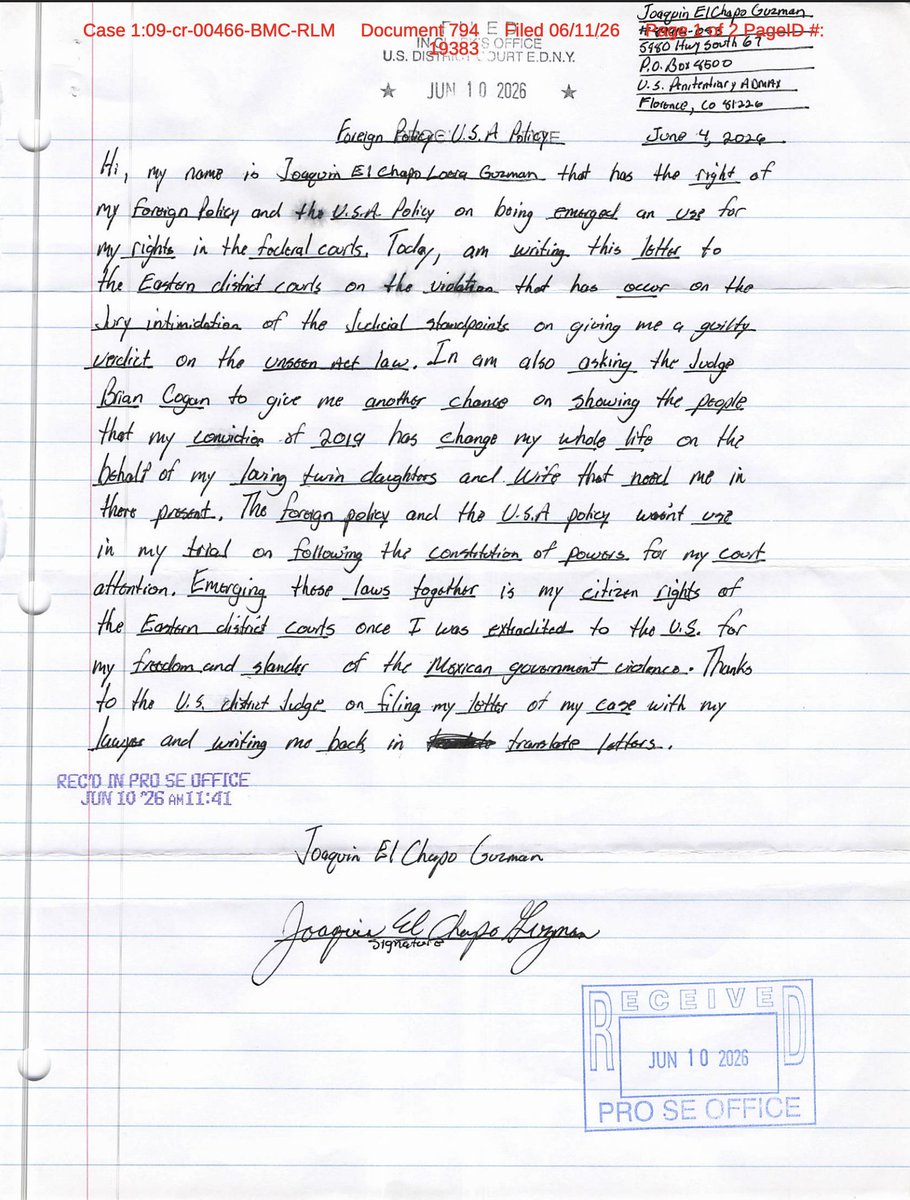 Case 1:09-cr-00466-BMC-RLM Document 794 Filed 06/11/26 Page 1 of 2 PageID #: 19383
FILED
IN CLERK'S OFFICE
U.S. DISTRICT COURT E.D.N.Y.
★ JUN 10 2026 ★
Joaquin El Chapo Guzman
5980 Hwy South 67
P.O. Box 8500
U.S. Penitentiary ADMAX
Florence, CO 81226
June 4, 2026
Foreign Policy - U.S.A Policy
Hi, my name is Joaquin El Chapo Loera Guzman that has the right of
my Foreign Policy and the U.S.A Policy on being emerged an use for
my rights in the federal courts. Today, am writing this letter to
the Eastern district courts on the violation that has occur on the
Jury intimidation of the Judicial standpoints on giving me a guilty
verdict on the unseen Act law. In am also asking the Judge
Brian Cogan to give me another chance on showing the people
that my conviction of 2019 has change my whole life on the
behalf of my loving twin daughters and Wife that need me in
there present. The foreign policy and the U.S.A policy wasn't use
in my trial on following the constitution of powers for my court
attention. Emerging those laws together is my citizen rights of
the Eastern district courts once I was extradited to the U.S. for
my freedom and slander of the Mexican government violence. Thanks
to the U.S. district Judge on filing my letter of my case with my
lawyer and writing me back in translate letters.
REC'D IN PRO SE OFFICE
JUN 10 '26 AM 11:41
Joaquin El Chapo Guzman
Joaquin El Chapo Guzman
Signature
RECEIVED
JUN 10 2026
PRO SE OFFICE